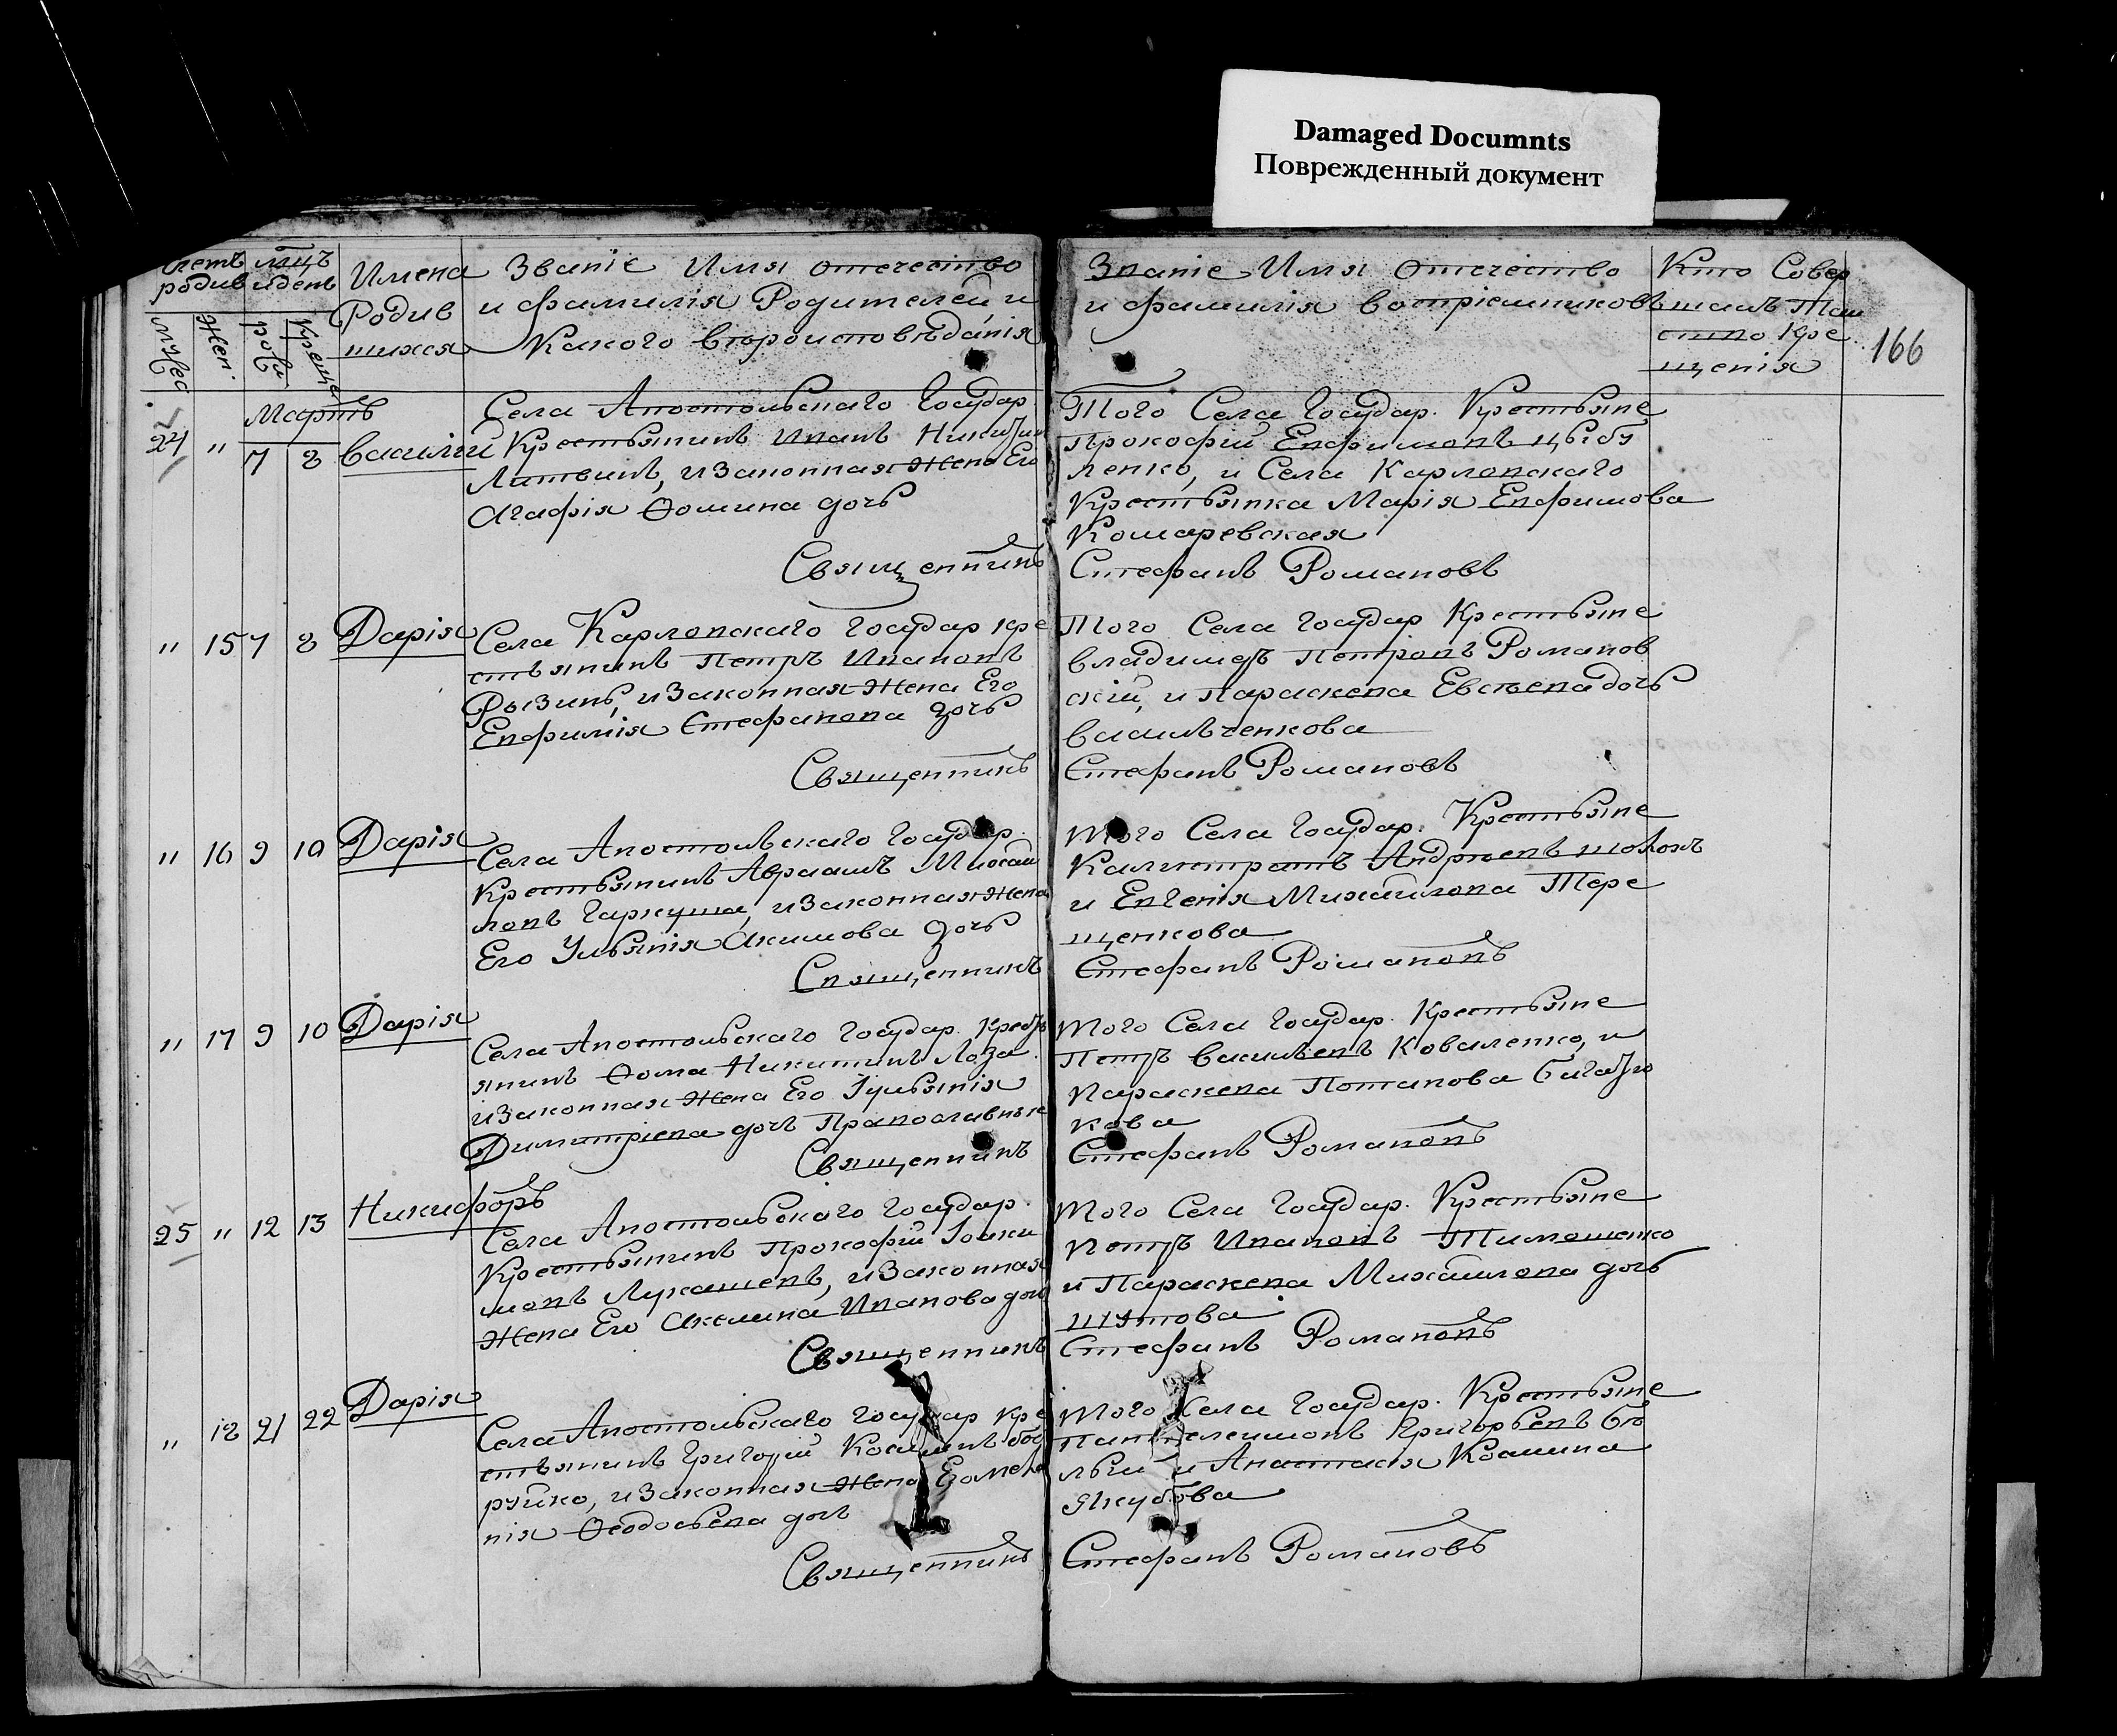 Damaged Documnts
Поврежденный документ
166
счетъ родив
мцъ и день
муж.
жен.
рожд
креще
Имена
Родив
шихся
Званіе Имя отечество
и фамилія Родителей и
Какого вѣроисповѣданія
Званіе Имя Отечество
и фамилія воспріемниковъ
Кто Совер
шалъ Таи
ство Кре
щенія
Мартъ
24 " 7 8 Василій
Села Апостольскаго Государ
Крестьянинъ Иванъ Никитин
Литвинъ, и законная жена Его
Агафія Ѳомина дочь
Священникъ
Того Села Государ. Крестьяне
Прокофій Евфимовъ Цыбу
ленко, и Села Карловскаго
Крестьянка Марія Евфимова
Комаревская
Стефанъ Романовъ
" 15 7 8 Дарія
Села Карловскаго Государ кре
стьянинъ Петръ Ивановъ
Рызинъ, и законная жена Его
Евфимія Стефанова дочь
Священникъ
Того Села Государ Крестьяне
Владимеръ Петровъ Романов
скій, и Параскева Евсѣева дочь
Васильченкова
Стефанъ Романовъ
" 16 9 10 Дарія
Села Апостольскаго Государ.
Крестьянинъ Авраамъ Михаи
ловъ Гаркуша, и законная жена
Его Ульянія Акимова дочь
Священникъ
Того Села Государ. Крестьяне
Каллистратъ Андреевъ
и Евгенія Михайлова Тере
щенкова
Стефанъ Романовъ
" 17 9 10 Дарія
Села Апостольскаго Государ. Кресть
янинъ Ѳома Никитинъ Лоза
и законная жена Его Іульянія
Димитріева дочь Православные
Священникъ
Того Села Государ. Крестьяне
Петръ Васильевъ Коваленко, и
Параскева Потапова
кова
Стефанъ Романовъ
25 " 12 13 Никифоръ
Села Апостольскаго Государ.
Крестьянинъ Прокофій Іоаки
мовъ Лукашевъ, и законная
Жена Его Акелина Иванова доч
Священникъ
Того Села Государ. Крестьяне
Петръ Ивановъ Тимошенко
и Параскева Михайлова дочь
Шутова
Стефанъ Романовъ
" 18 21 22 Дарія
Села Апостольскаго Государ кре
стьянинъ Григорій Косминъ Бот
руйко, и законная жена Его Мела
нія Ѳеодосьева дочь
Священникъ
Того Села Государ. Крестьяне
Пантелеимонъ Григорьевъ Бѣ
лый и Анастасія Космина
Якубова
Стефанъ Романовъ